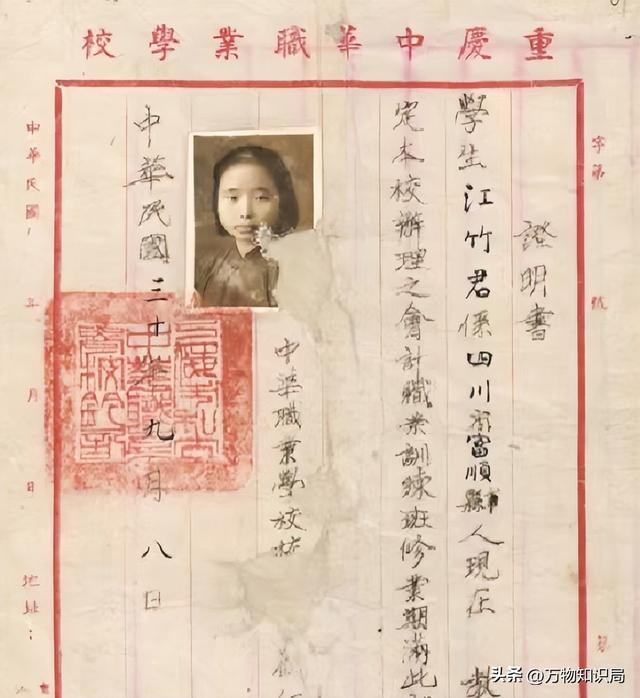 重慶中華職業學校
字第
號
證明書
學生江竹君係四川省富順縣人現在
定本校辦理之會計職業訓練班修業期滿此
中華職業學校校
中華民國三十年九月八日
中華民國
年
月
日
地址：
頭条 @万物知识局